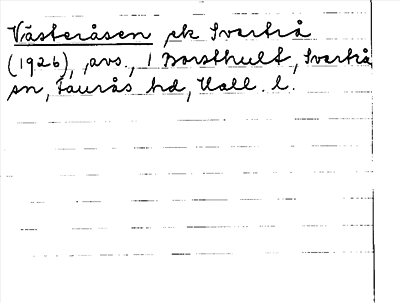 Västeråsen pk Svartrå
(1926), avs., i Borsthult, Svartrå
sn, Faurås hd, Hall. l.